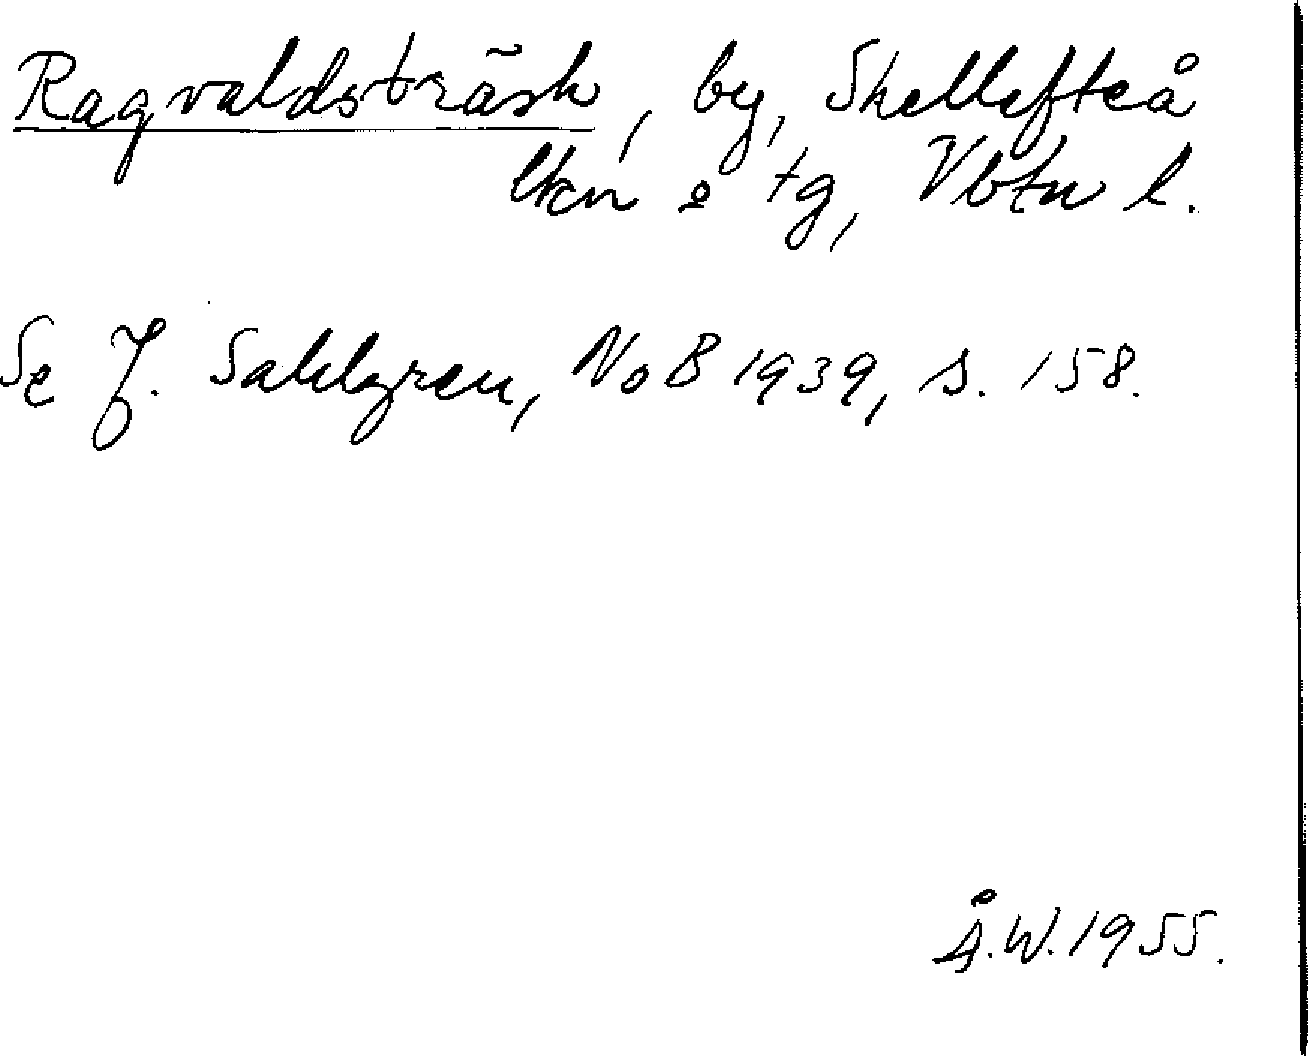 Ragvaldsträsk, by, Skellefteå
lkn o tg, Vbtn l.
Se J. Sahlgren, NoB 1939, s. 158.
Å.W. 1955.